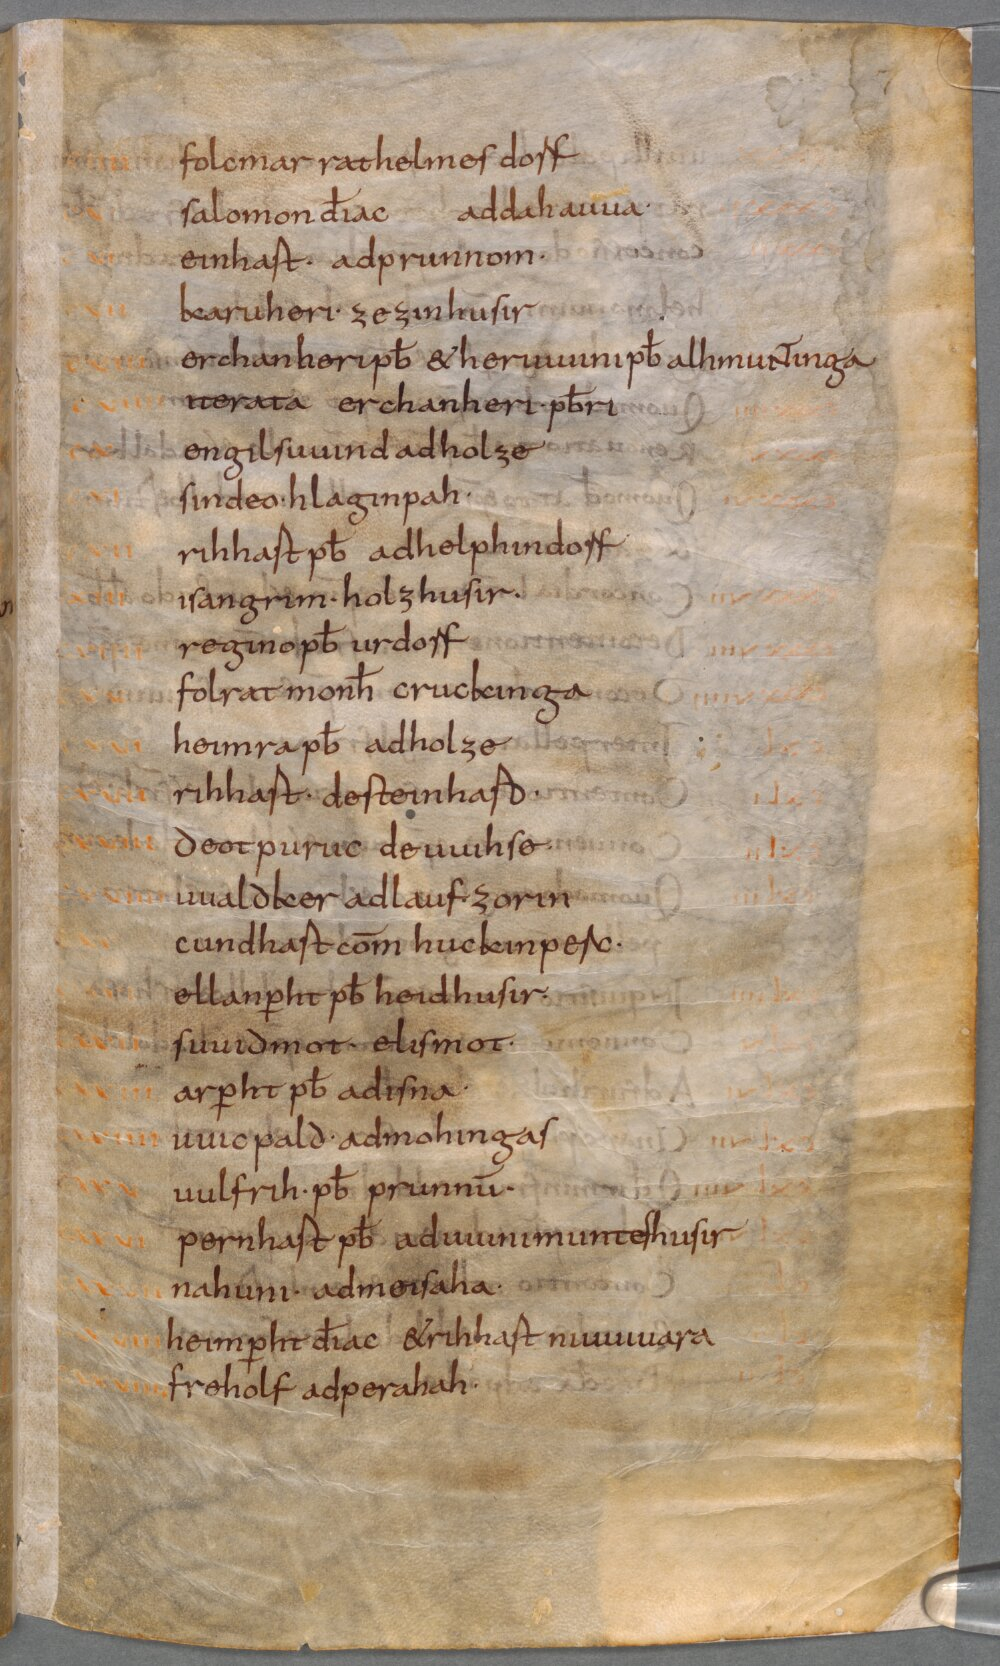 folcmar rathelmes dorff
salomon d̄iac addahauua·
einhast· adprunnom·
kearuheri· zezinhusir
erchanheri pb̄ & heriuuini pb̄ alhmuntinga
iterata erchanheri· pb̄ri
engilsuuind adholze
sindeo· hlaginpah·
rihhast pb̄ adhelphindorff
isangrim· holzhusir·
regino pb̄ urdorff
folrat monh̄ cruckinga
heimra pb̄ adholze
rihhast· desteinhard·
deotpuruc deuuihse·
uualdker adlauf·zorin
cundhast com̄ huckinpesc·
ellanp̄ht pb̄ heidhusir·
suuidmot· elismot·
arp̄ht pb̄ adisna·
uuicpald· admohingas
uulfrih· pb̄ prunnū·
pernhast pb̄ aduuinimunteshusir
nahuni· admeisaha·
heimp̄ht d̄iac & rihhast niuuuara
freholf adperahah·